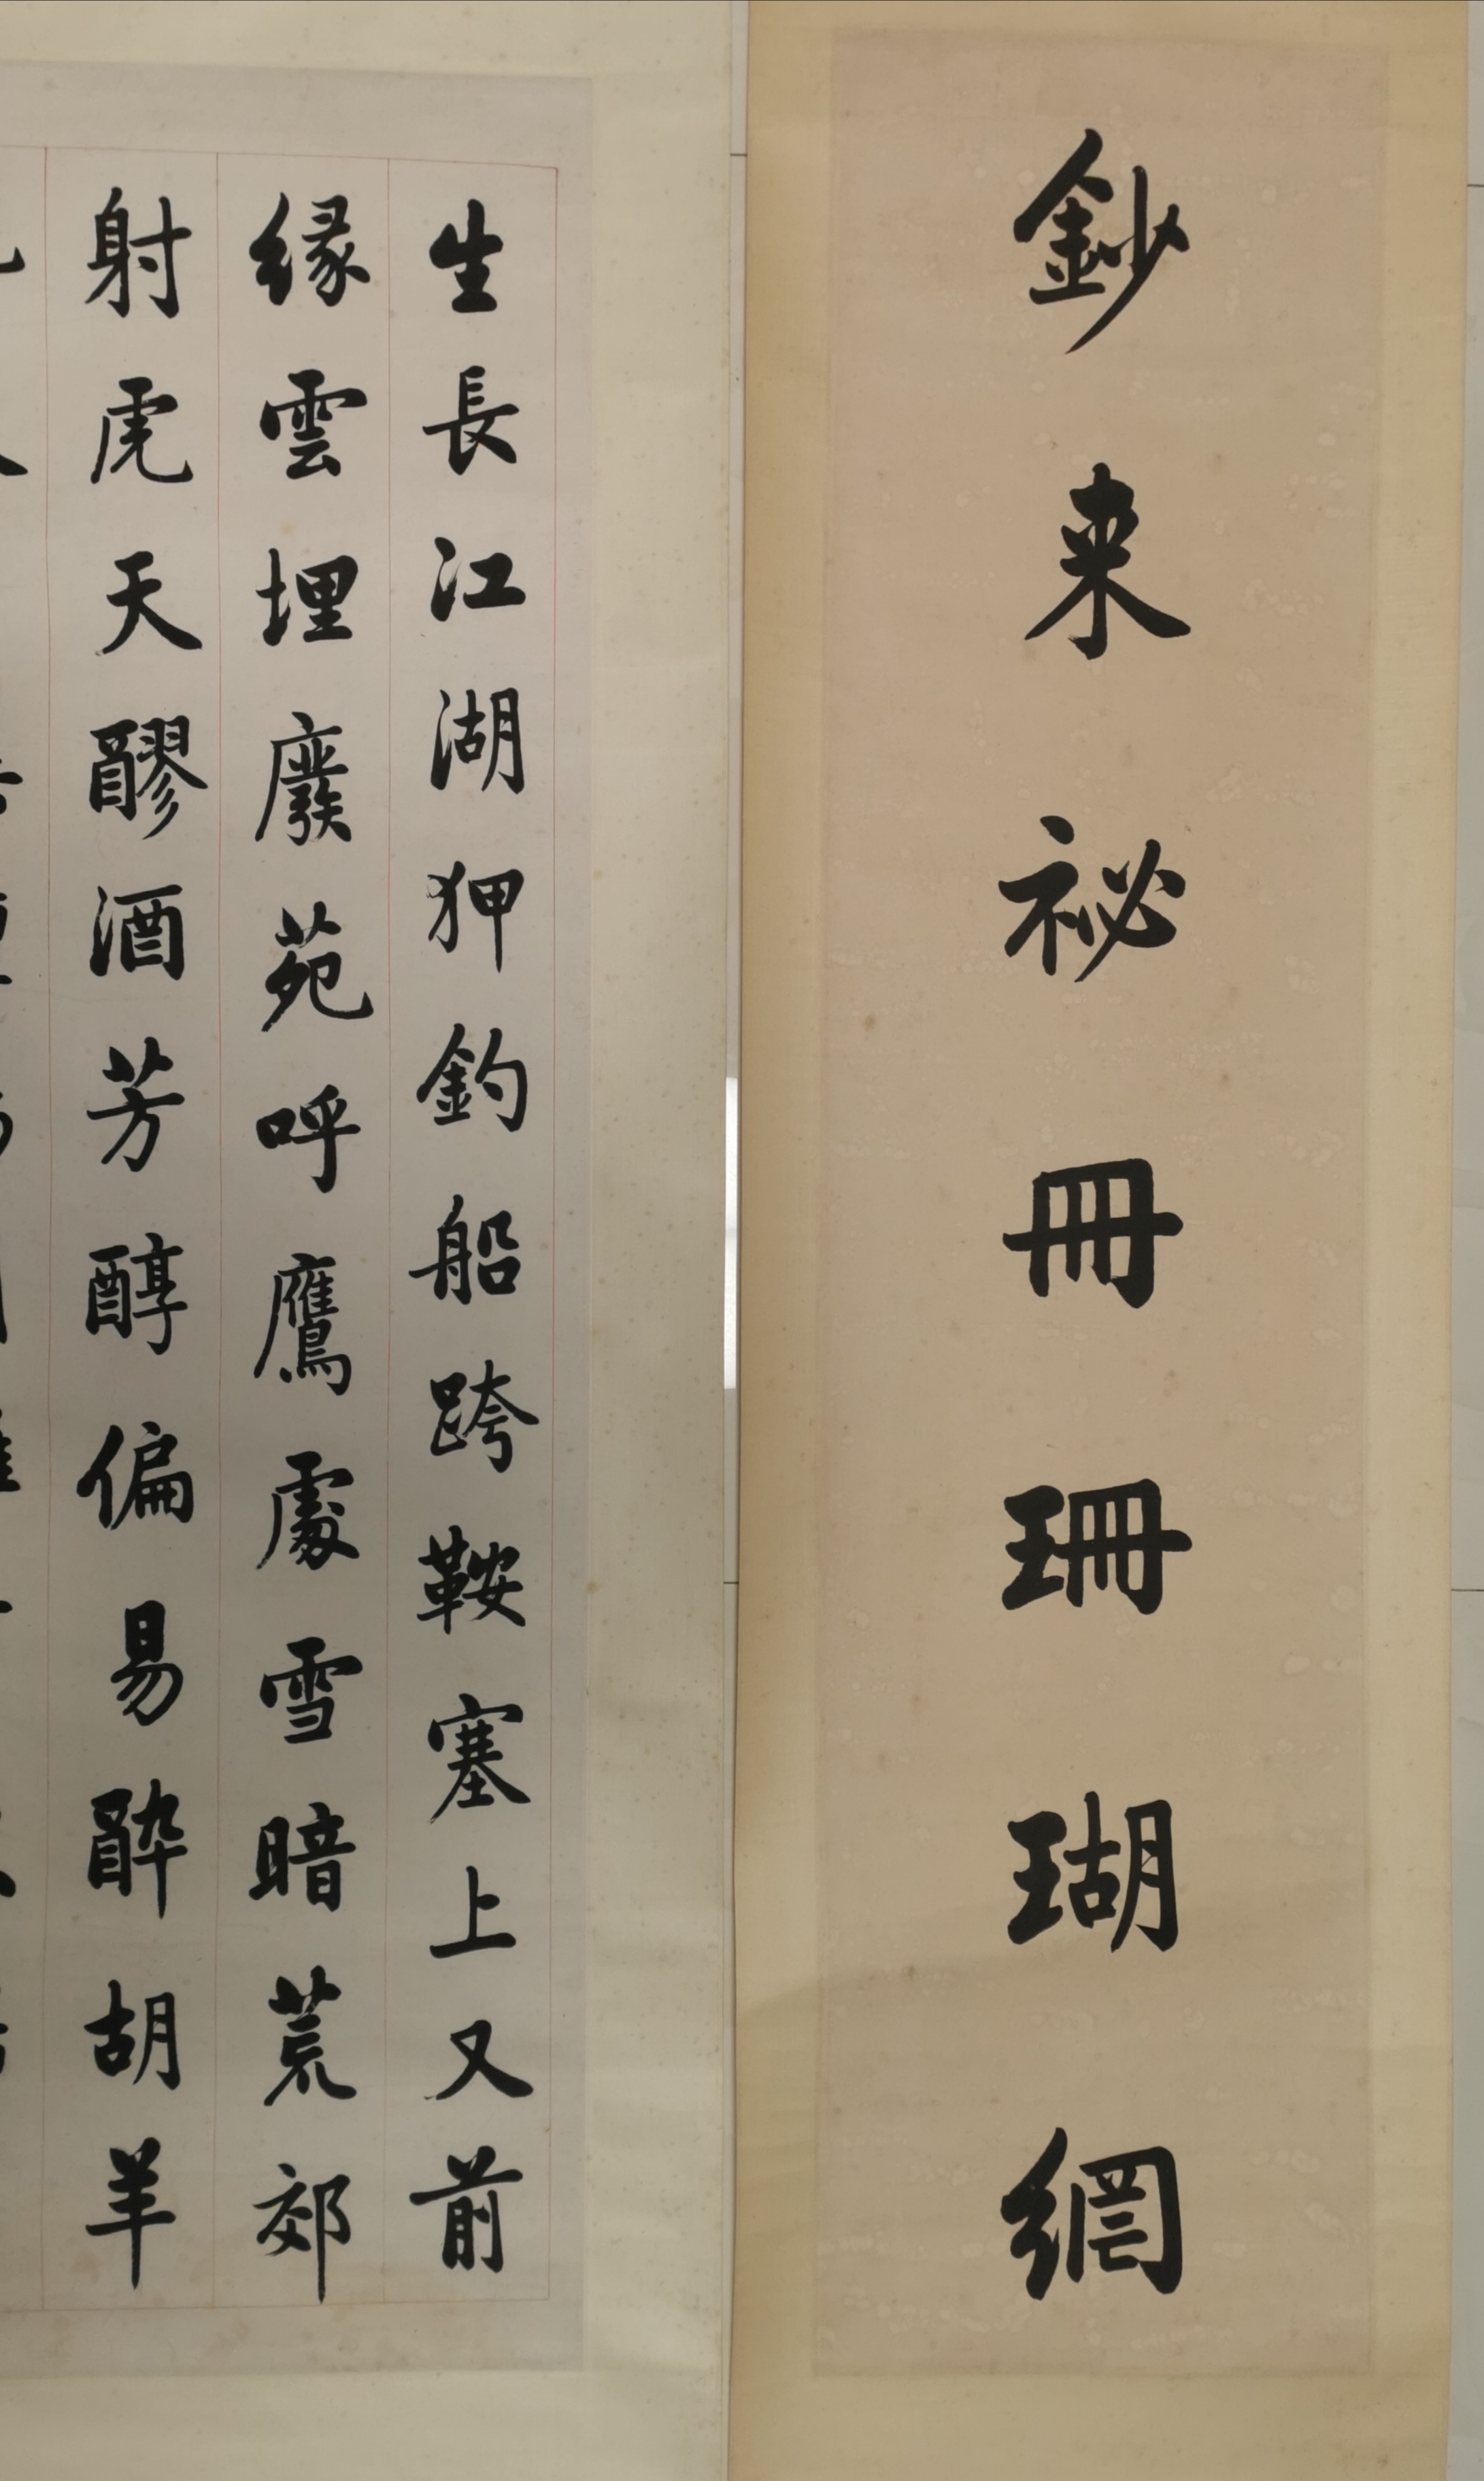 鈔来祕冊珊瑚網
生長江湖狎釣船跨鞍塞上又前
緣雲埋廢苑呼鷹處雪暗荒郊
射虎天醪酒芳醇偏易醉胡羊